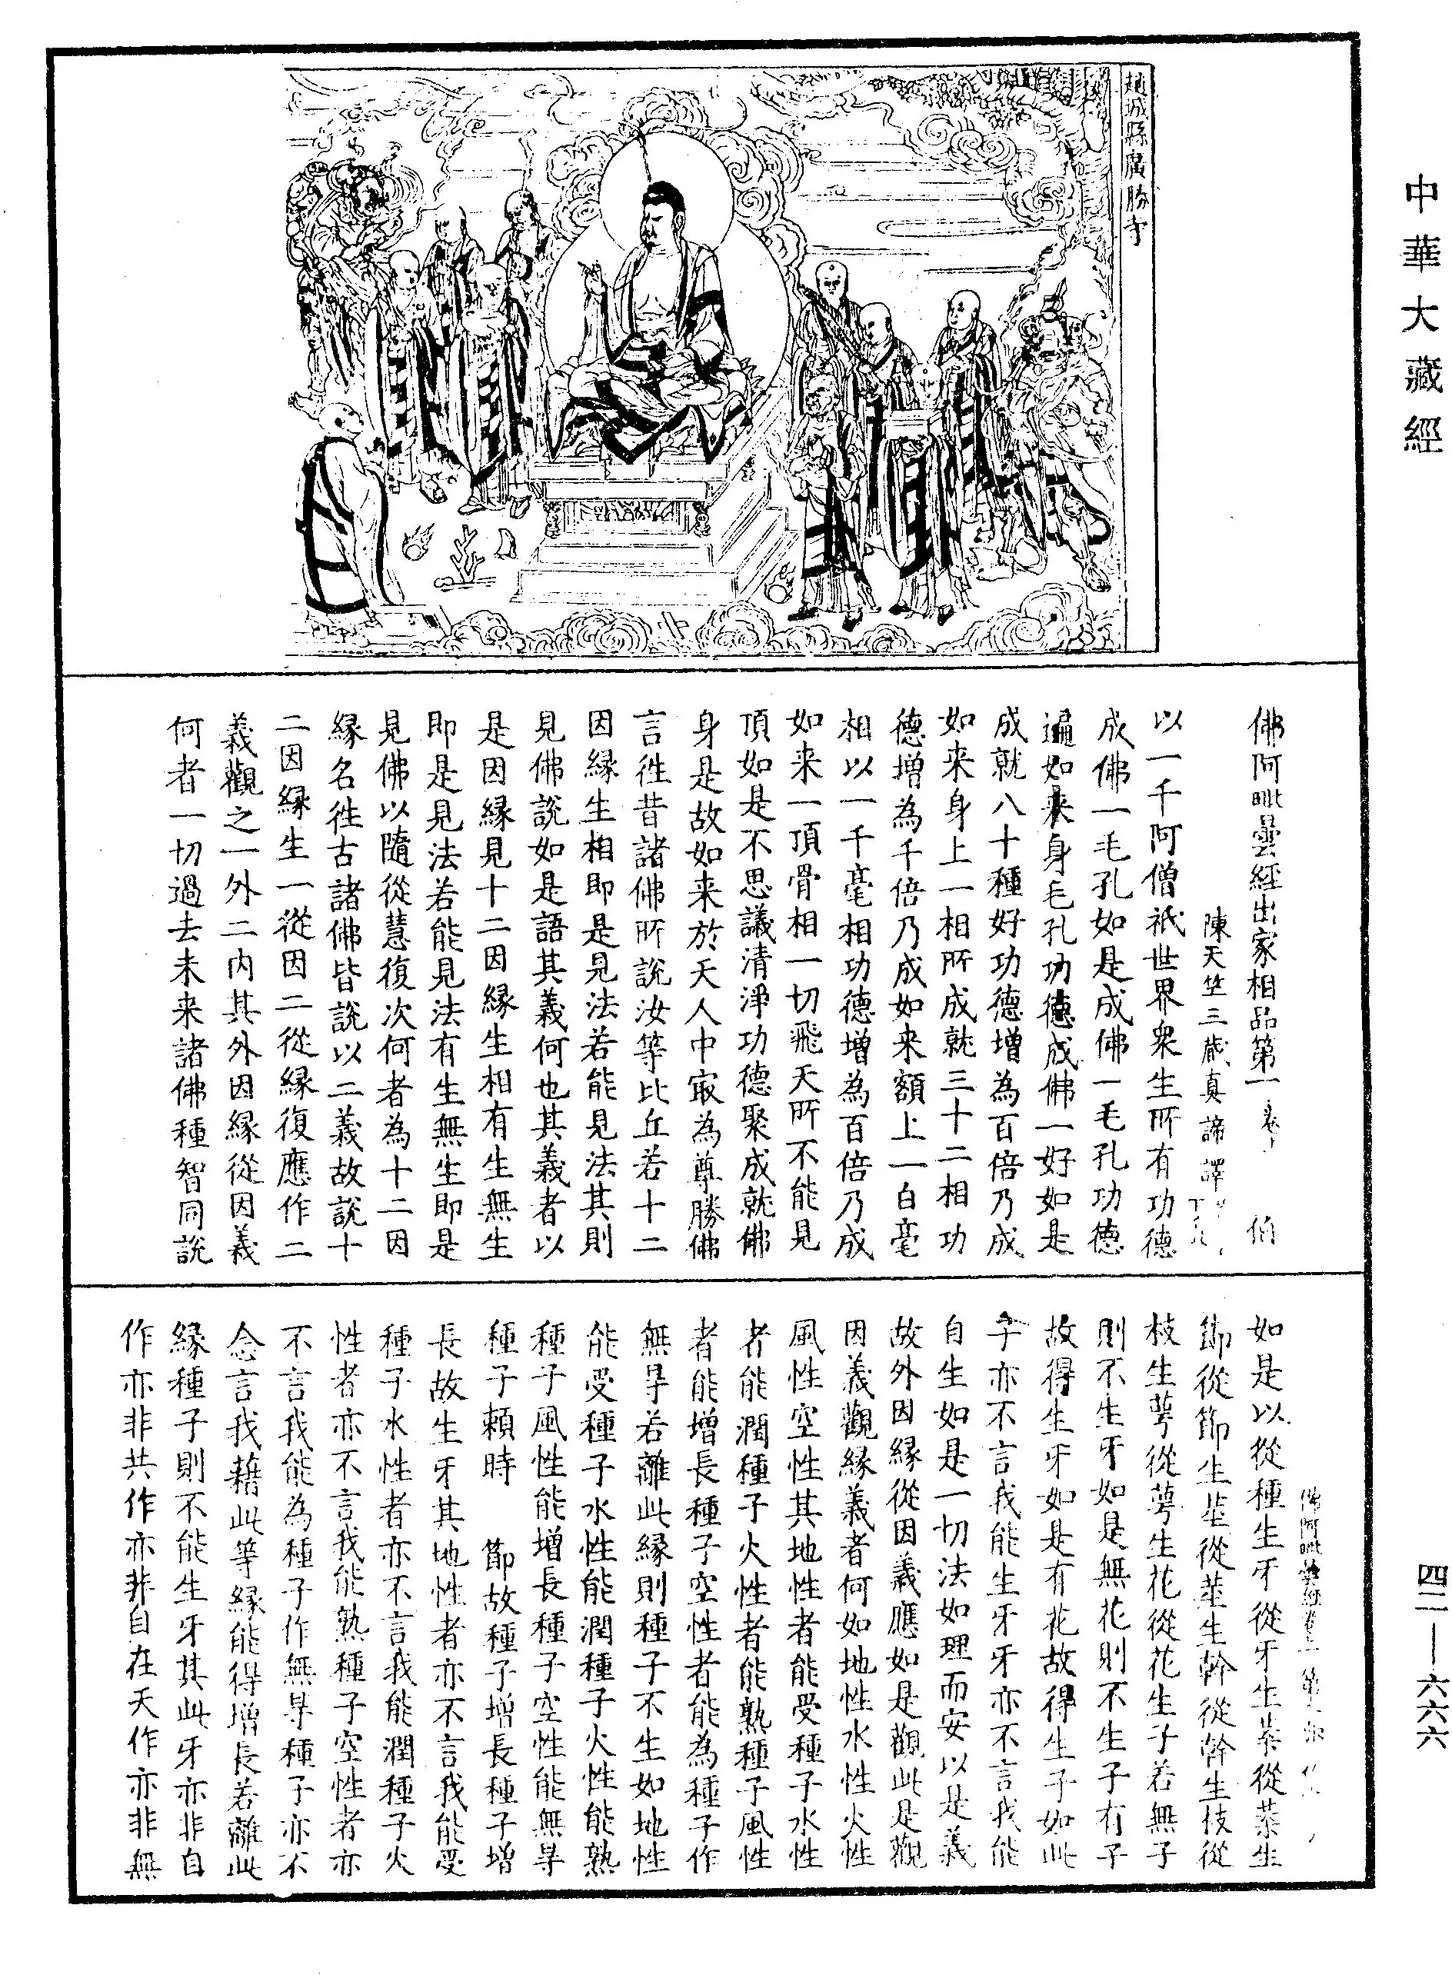 中華大藏經
趙城縣廣勝寺
佛阿毗曇經出家相品第一 卷上 伯
陳天竺三藏真諦譯
以一千阿僧祇世界衆生所有功德
成佛一毛孔如是成佛一毛孔功德
遍如来身毛孔功德成佛一好如是
成就八十種好功德增為百倍乃成
如来身上一相所成就三十二相功
德增為千倍乃成如来額上一白毫
相以一千毫相功德增為百倍乃成
如来一頂骨相一切飛天所不能見
頂如是不思議清淨功德聚成就佛
身是故如来於天人中寂為尊勝佛
言徃昔諸佛所說汝等比丘若十二
因緣生相即是見法若能見法其則
見佛說如是語其義何也其義者以
是因緣見十二因緣生相有生無生
即是見法若能見法有生無生即是
見佛以隨從慧復次何者為十二因
緣名徃古諸佛皆說以二義故說十
二因緣生一從因二從緣復應作二
義觀之一外二内其外因緣從因義
何者一切過去未来諸佛種智同說
佛阿毗曇經卷上
如是以從種生牙從牙生葉從葉生
節從節生莖從莖生幹從幹生枝從
枝生萼從萼生花從花生子若無子
則不生牙如是無花則不生子有子
故得生牙如是有花故得生子如此
子亦不言我能生牙牙亦不言我能
自生如是一切法如理而安以是義
故外因緣從因義應如是觀此是觀
因義觀緣義者何如地性水性火性
風性空性其地性者能受種子水性
者能潤種子火性者能熟種子風性
者能增長種子空性者能為種子作
無㝵若離此緣則種子不生如地性
能受種子水性能潤種子火性能熟
種子風性能增長種子空性能無㝵
種子賴時 節故種子增長種子增
長故生牙其地性者亦不言我能受
種子水性者亦不言我能潤種子火
性者亦不言我能熟種子空性者亦
不言我能為種子作無㝵種子亦不
念言我藉此等緣能得增長若離此
緣種子則不能生牙其此牙亦非自
作亦非共作亦非自在天作亦非無
四二—六六六